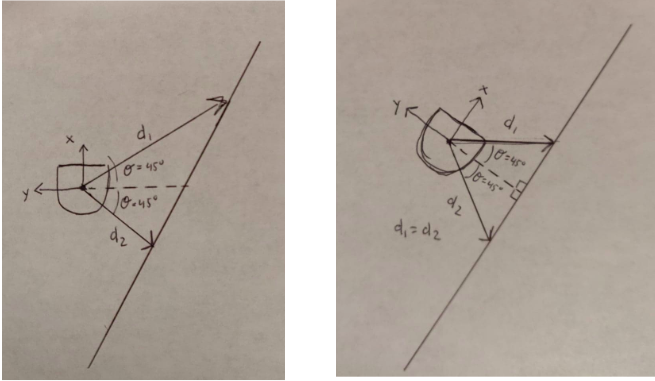 x
d₁
θ=45°
y
θ=45°
d₂
x
y
d₁
θ=45°
θ=45°
d₂
d₁=d₂